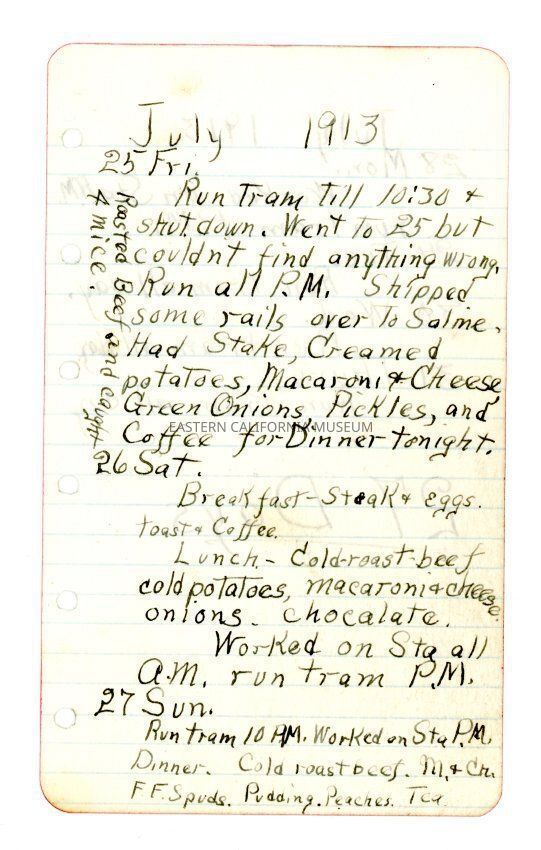 July 1913
25 Fri.
Run Tram Till 10:30 &
shut down. Went To 25 but
couldnt find anything wrong.
Run all P.M. Shipped
some rails over To Saline.
Had Stake, Creamed
potatoes, Macaroni & Cheese
Green Onions, Pickles, and
Coffee for Dinner tonight.
Roasted Beef and caught
4 mice.
EASTERN CALIFORNIA MUSEUM
26 Sat.
Breakfast - Steak & eggs.
toast & Coffee.
Lunch - Cold-roast-beef
cold potatoes, macaroni & cheese
onions. chocalate.
Worked on Sta all
A.M. run tram P.M.
27 Sun.
Run tram 10 AM. Worked on Sta P.M.
Dinner. Cold roast beef. M. & Ch.
F.F. Spuds. Pudding. Peaches. Tea